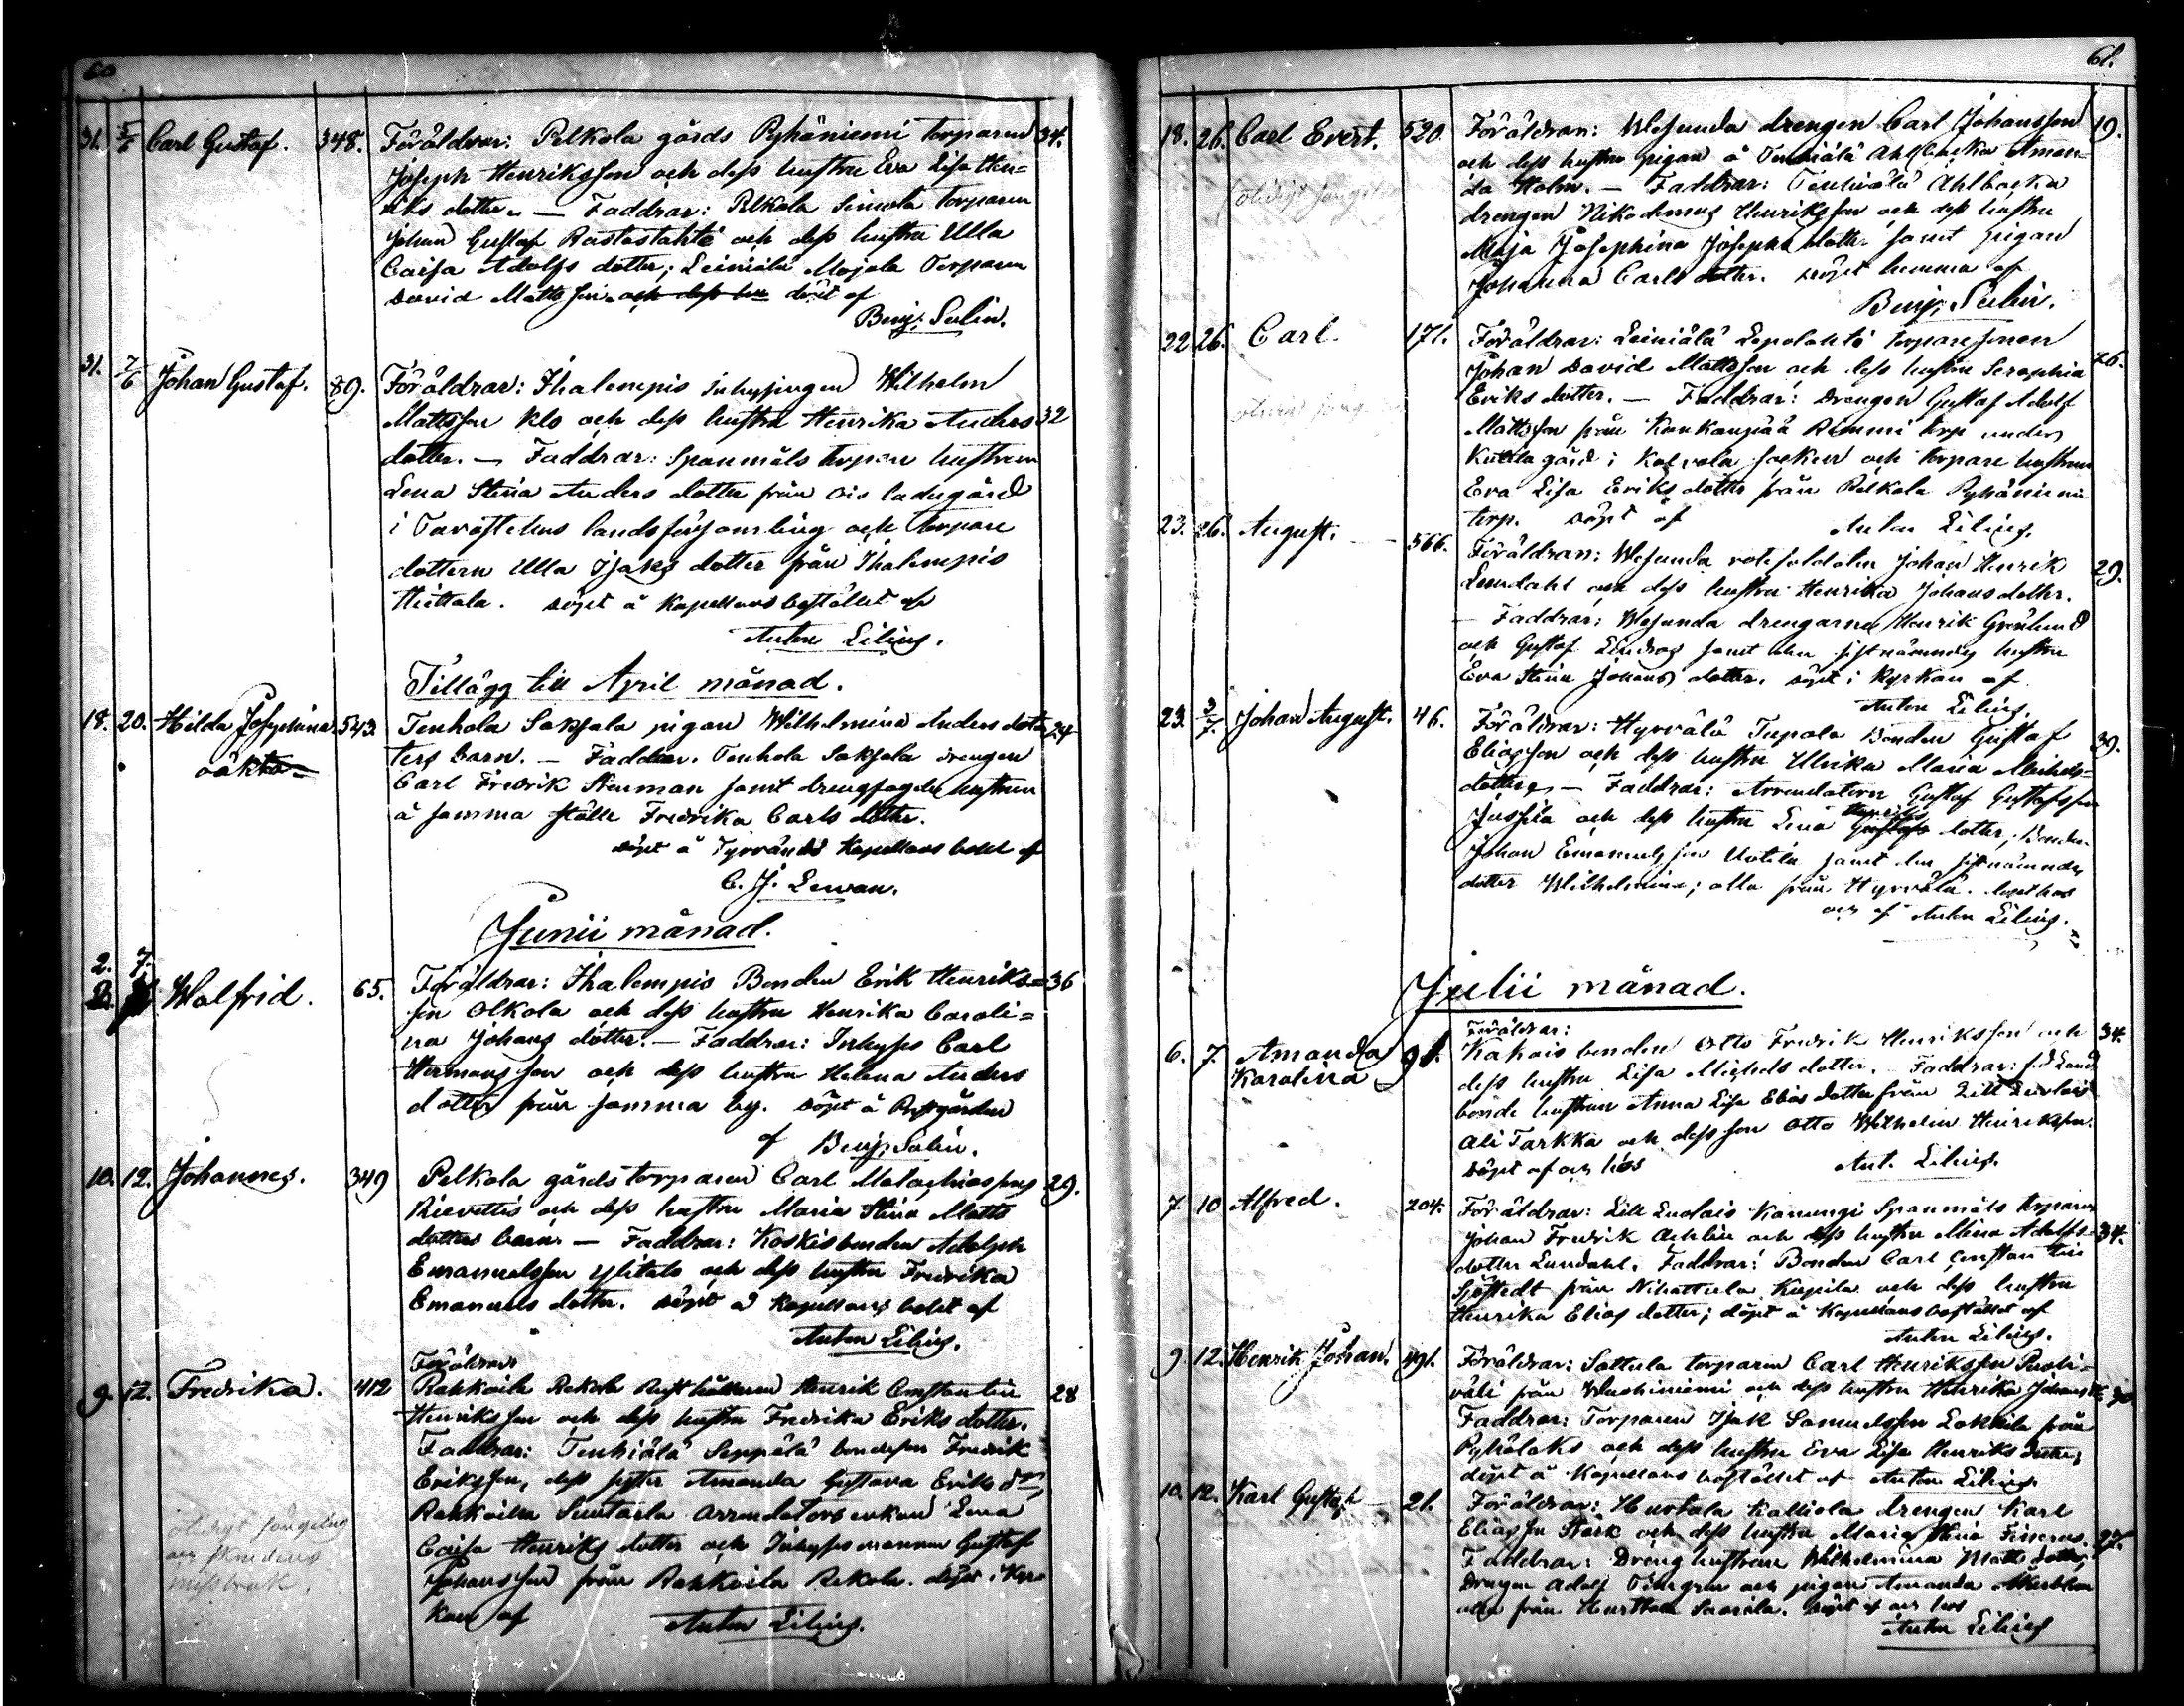 60
31. 5/6 Carl Gustaf. 348. Föräldrar: Pelkola gårds Pyhäniemi torparen 34.
Joseph Henriksson och dess hustru Eva Lisa Hen=
riks dotter. — Faddrar: Pelkola Simola torparen
Johan Gustaf Rastastahti och dess hustru Ulla
Caisa Adolfs dotter; Leiniälä Mojala Torparen
David Mattsson och dess hu döpt af
Benj. Salin.
31. 7/6 Johan Gustaf. 89. Föräldrar: Ihalempis inhysingen Wilhelm
Mattsson Klo och dess hustru Henrika Anders 32
dotter. — Faddrar: Spanmåls torpare hustrun
Lena Stina Anders dotter från Ois ladugård
i Tavastehus landsförsamling och torpare
dottern Ulla Isaks dotter från Ihalempis
Hiettala. döpt å Kapellansbostället af
Anton Lilius.
Tillägg till April månad.
18. 20. Hilda Josephina 543. Tenhola Saksala pigan Wilhelmina Anders dot= 24
oäkta ters barn. — Faddrar. Tenhola Saksala drengen
Carl Fredrik Neuman samt drengfogde hustrun
å samma ställe Fredrika Carls dotter.
döpt å Tyrvändö Kapellans bolet af
C. J. Lewan.
Junii månad.
2. 7.
Walfrid. 65. Föräldrar: Ihalempis Bonden Erik Henriks= 36
son Olkola och dess hustru Henrika Caroli=
na Johans dotter. — Faddrar: Inhyses Carl
Hermansson och dess hustru Helena Anders
dotter från samma by. döpt å Prestgården
af Benj. Salin.
10. 12. Johannes. 349 Pelkola gårds torparen Carl Matthiassons 29.
Rievettis och dess hustru Maria Stina Matts
dotters barn. — Faddrar: Koskisbonden Adolph
Emanuelsson Ylitalo och dess hustru Fredrika
Emanuels dotter. döpt å Kapellans bolet af
Anton Lilius.
Föräldrar
9. 12. Fredrika. 412 Rahkoila Rekola Rusthållaren Henrik Constantin 28
Henriksson och dess hustru Fredrika Eriks dotter.
Faddrar: Tenhiälä Seppälä bondeson Fredrik
Eriksson, dess syster Amanda Gustava Eriks dr,
Rahkoila Suntaela arrendators enkan Lena
Caisa Henriks dotter och Inhyses mannen Gustaf
Johansson från Rahkoila Rekola. döpt i Kyr=
kan af Anton Lilius.
61.
18. 26. Carl Evert. 520. Föräldrar: Wesunda drengen Carl Johansson 19.
och dess hustru pigan å Tenhiälä Ahlbacka Aman=
da Holm. — Faddrar: Tenhiälä Ahlbacka
drengen Nikodemus Henriksson och dess hustru
Maja Josephina Josephs dotter samt pigan
Johanna Carls dotter. döpt hemma af
Benj. Salin.
22. 26. Carl. 171. Föräldrar: Leiniälä Lepolahti torparesonen
Johan David Mattsson och dess hustru Seraphia 26.
Eriks dotter. — Faddrar: drengen Gustaf Adolf
Mattsson från Kankaanpää Rimmi torp under
Kuttila gård i Kalvola socken och torpare hustrun
Eva Lisa Eriks dotter från Pelkola Pyhäniemi
torp. döpt af Anton Lilius.
23. 26. August. 566. Föräldrar: Wesunda rotesoldaten Johan Henrik 29.
Lundahl och dess hustru Henrika Johans dotter.
— Faddrar: Wesunda drengarne Henrik Grönlund
och Gustaf Lindros samt den sistnämndes hustru
Eva Stina Johans dotter. döpt i Kyrkan af
Anton Lilius.
23. 2/7. Johan August. 46. Föräldrar: Hyrvälä Tupala Bonden Gustaf 39.
Eliasson och dess hustru Ulrika Maria Michels=
dotter. — Faddrar: Arrendatorn Gustaf Gustafsson
Jussila och dess hustru Lena Henriks dotter; Bonden
Johan Emanuelsson Uotila samt den sistnämndes
dotter Wilhelmina; alla från Hyrvälä. döpt hos
oss af Anton Lilius.
Julii månad.
Föräldrar:
6. 7. Amanda 91. Kakois bonden Otto Fredrik Henriksson och 34.
Karolina dess hustru Lisa Michels dotter. Faddrar: f.d. Land
bonde hustrun Anna Lisa Elias dotter från Lill Luolais
Ali Tarkka och dess son Otto Wilhelm Henriksson.
döpt af oss hos Ant. Lilius.
7. 10 Alfred. 204. Föräldrar: Lill Luolais Kanungi Spanmåls torparen
Johan Fredrik Achlin och dess hustru Mina Adolfs= 34.
dotter Lundahl. Faddrar: Bonden Carl Constantin
Sjöstedt från Nihattula Kupila och dess hustru
Henrika Elias dotter; döpt å Kapellans bostället af
Anton Lilius.
9. 12. Henrik Johan. 491. Föräldrar: Sattula torparen Carl Henriksson Puoli=
väli från Wuohiniemi och dess hustru Henrika Johans dr.
Faddrar: Torparen Isak Samuelsson Lakkila från
Pyhälaks och dess hustru Eva Lisa Henriks dotter,
döpt å Kapellans bostället af Anton Lilius.
10. 12. Karl Gustaf 21. Föräldrar: Hurtala Kalliola drengen Karl
Eliasson Stark och dess hustru Maria Stina Finerus. 27.
Faddrar: Dreng hustrun Wilhelmina Matts dotter,
Drengen Adolf Timgren och pigan Amanda
alla från Hurttala Saarela. döpt af oss hos
Anton Lilius